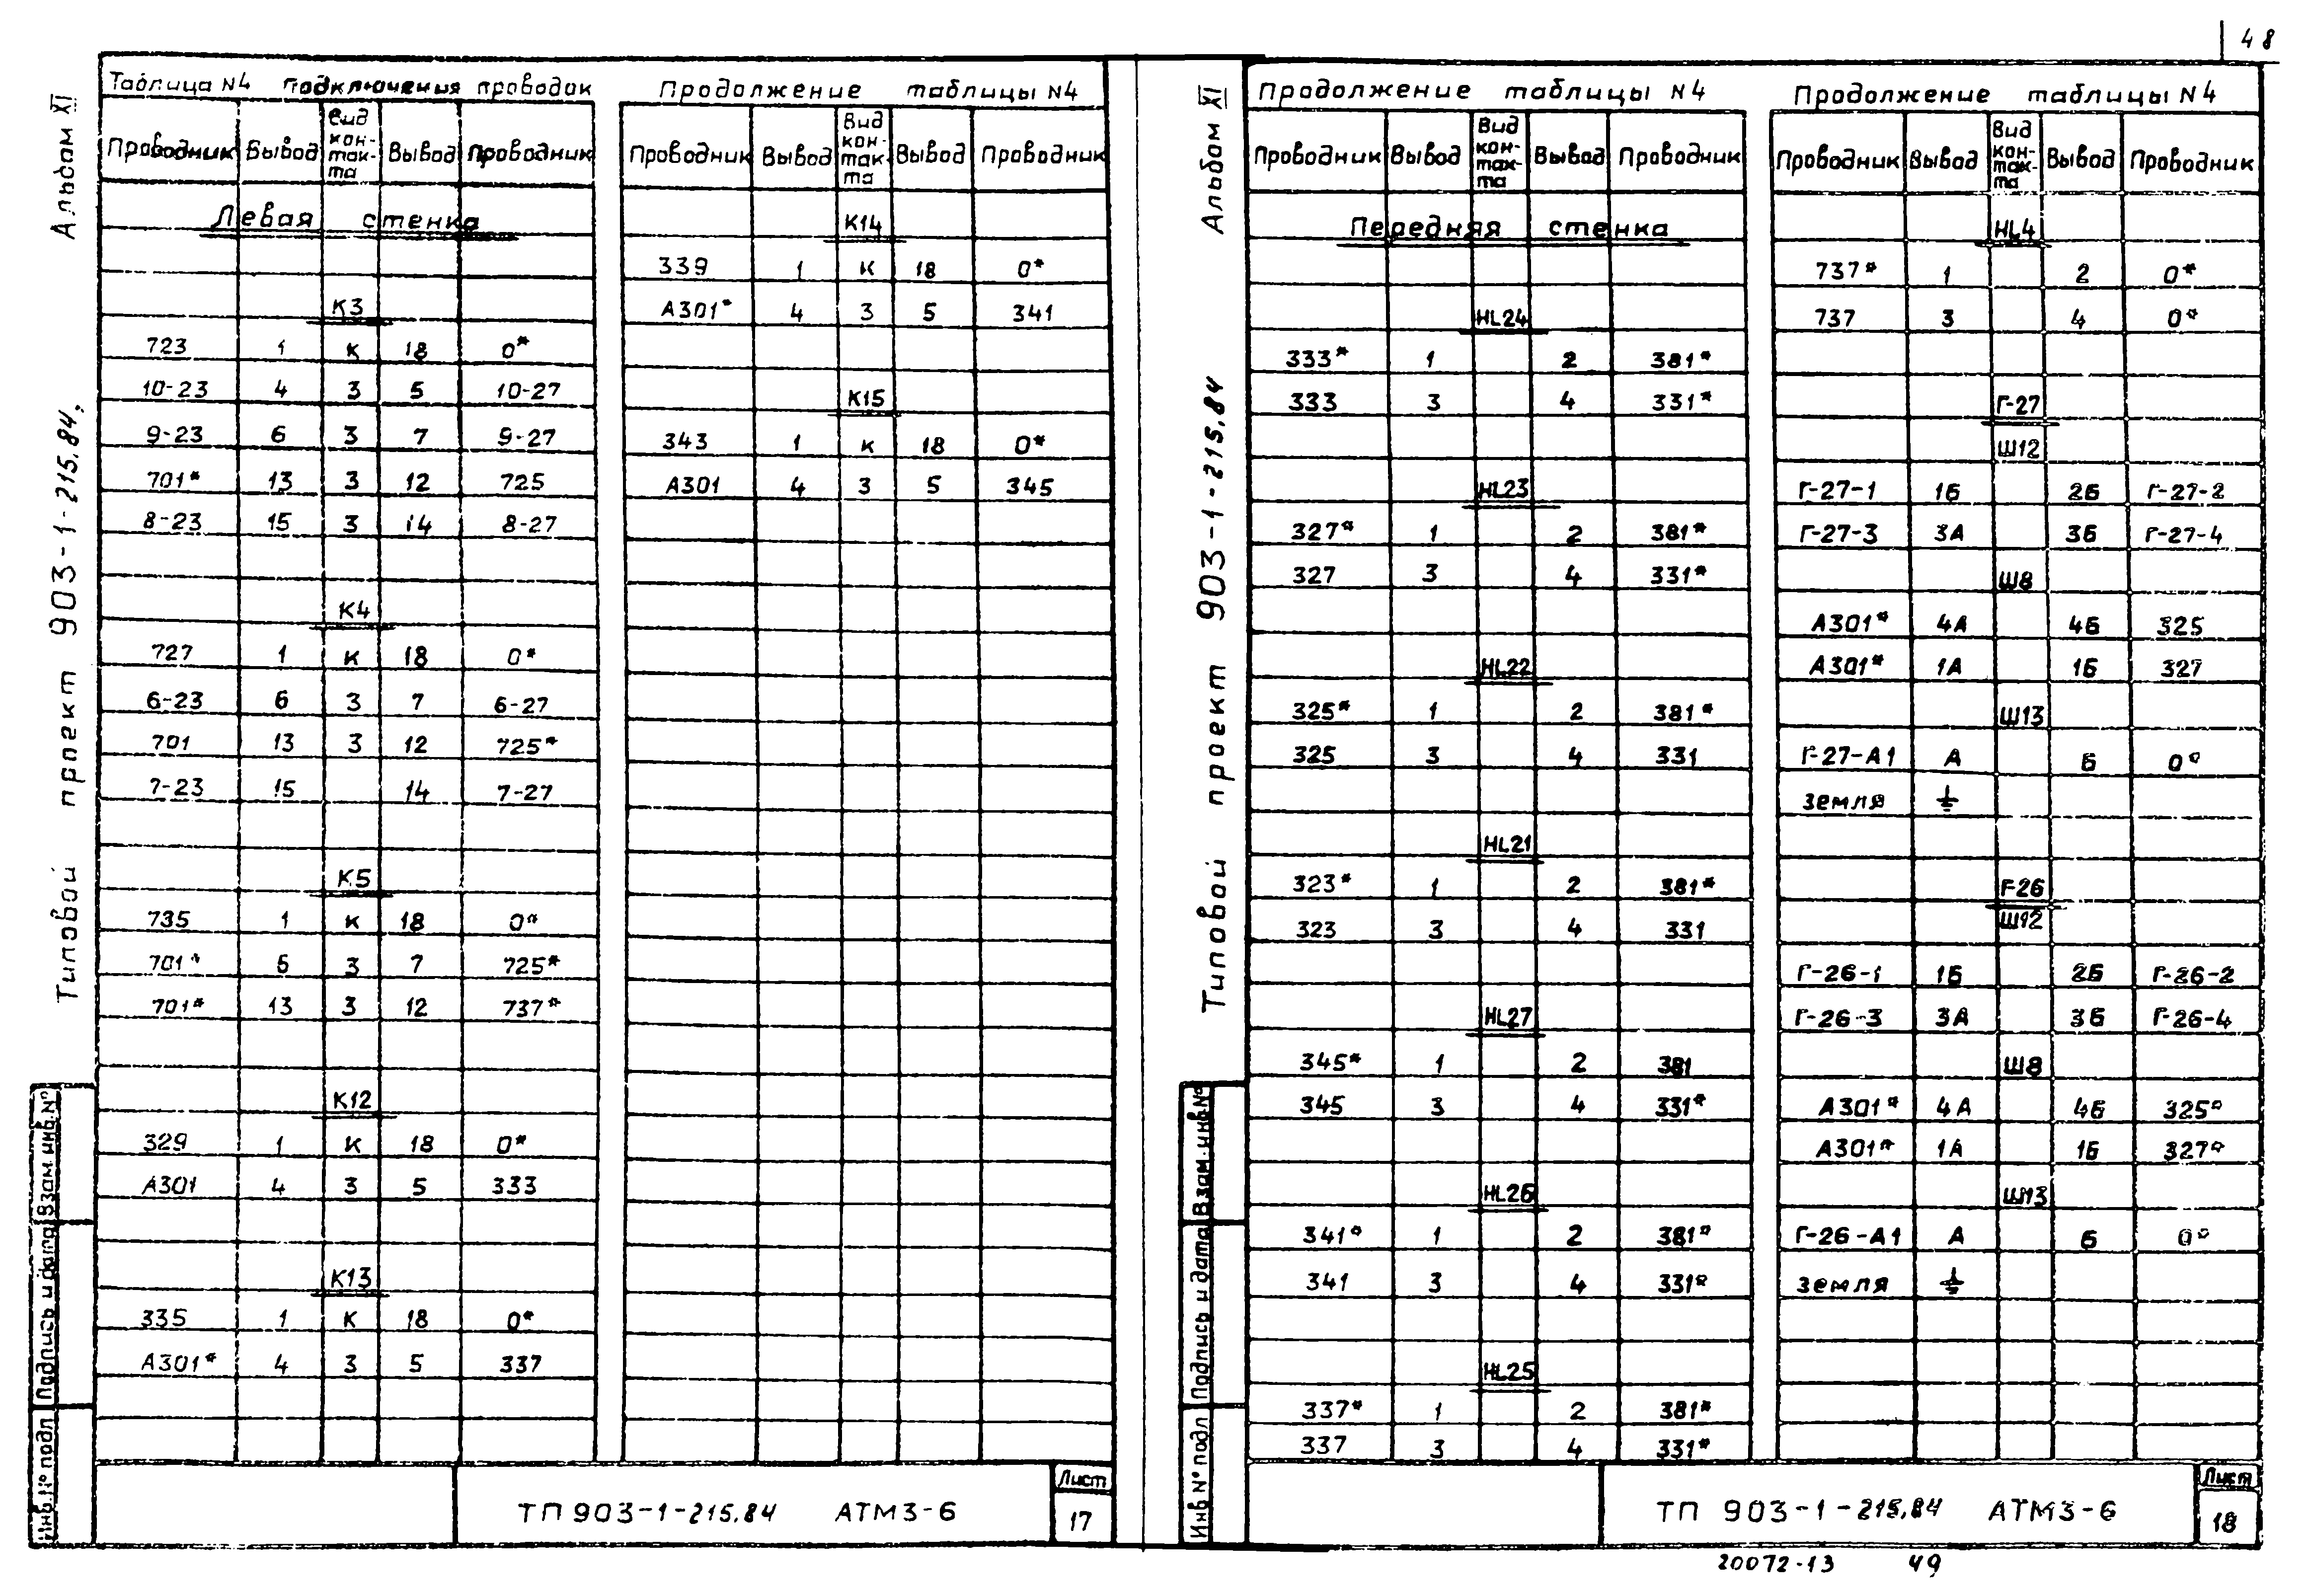 48
Альбом XI
Типовой проект 903-1-215.84.
Таблица N4 подключения проводок
Проводник Вывод Вид кон-так-та Вывод Проводник
Левая стенка
К3
723 1 К 18 0*
10-23 4 3 5 10-27
9-23 6 3 7 9-27
701* 13 3 12 725
8-23 15 3 14 8-27
К4
727 1 К 18 0*
6-23 6 3 7 6-27
701 13 3 12 725*
7-23 15 14 7-27
К5
735 1 К 18 0*
701* 6 3 7 725*
701* 13 3 12 737*
К12
329 1 К 18 0*
А301 4 3 5 333
К13
335 1 К 18 0*
А301* 4 3 5 337
Продолжение таблицы N4
Проводник Вывод Вид кон-так-та Вывод Проводник
К14
339 1 К 18 0*
А301* 4 3 5 341
К15
343 1 К 18 0*
А301 4 3 5 345
Инв.N° подл Подпись и дата Взам. инв.N°
ТП 903-1-215.84 АТМ3-6
Лист
17
Альбом XI
Типовой проект 903-1-215.84
Продолжение таблицы N4
Проводник Вывод Вид кон-так-та Вывод Проводник
Передняя стенка
HL24
333* 1 2 381*
333 3 4 331*
HL23
327* 1 2 381*
327 3 4 331*
HL22
325* 1 2 381*
325 3 4 331
HL21
323* 1 2 381*
323 3 4 331
HL27
345* 1 2 381
345 3 4 331*
HL26
341* 1 2 381*
341 3 4 331*
HL25
337* 1 2 381*
337 3 4 331*
Продолжение таблицы N4
Проводник Вывод Вид кон-так-та Вывод Проводник
HL4
737* 1 2 0*
737 3 4 0*
Г-27
Ш12
Г-27-1 1Б 2Б Г-27-2
Г-27-3 3А 3Б Г-27-4
Ш8
А301* 4А 4Б 325
А301* 1А 1Б 327
Ш13
Г-27-А1 А Б 0*
земля ⏚
Г-26
Ш12
Г-26-1 1Б 2Б Г-26-2
Г-26-3 3А 3Б Г-26-4
Ш8
А301* 4А 4Б 325*
А301* 1А 1Б 327*
Ш13
Г-26-А1 А Б 0*
земля ⏚
Инв N° подл Подпись и дата Взам. инв N°
ТП 903-1-215.84 АТМ3-6
Лист
18
20072-13 49